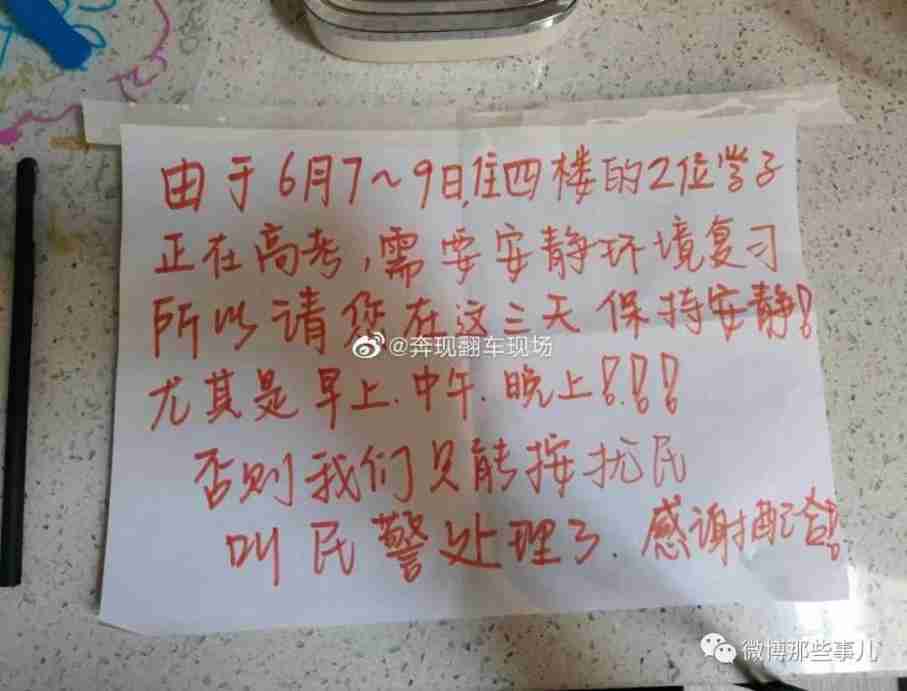 由于6月7~9日,住四楼的2位学子
正在高考,需要安静环境复习
所以请您在这三天保持安静!
@奔现翻车现场
尤其是早上、中午、晚上!!!
否则我们只能按扰民
叫民警处理了、感谢配合!
微博那些事儿